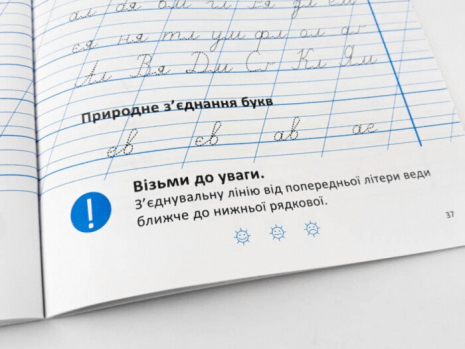 єя ня тл ум фл ол
Ал Вя Дм Ст Кл Ям
Природне з’єднання букв
єв єв ав ає
Візьми до уваги.
З’єднувальну лінію від попередньої літери веди
ближче до нижньої рядкової.
37